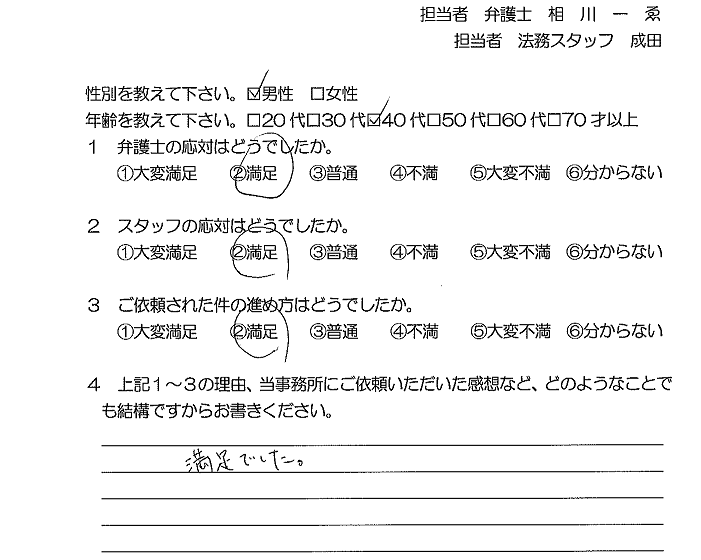 担当者 弁護士 相 川 一 ゑ
担当者 法務スタッフ 成田
性別を教えて下さい。☑男性 □女性
年齢を教えて下さい。□20代□30代☑40代□50代□60代□70才以上
1 弁護士の応対はどうでしたか。
①大変満足 ②満足 ③普通 ④不満 ⑤大変不満 ⑥分からない
2 スタッフの応対はどうでしたか。
①大変満足 ②満足 ③普通 ④不満 ⑤大変不満 ⑥分からない
3 ご依頼された件の進め方はどうでしたか。
①大変満足 ②満足 ③普通 ④不満 ⑤大変不満 ⑥分からない
4 上記1～3の理由、当事務所にご依頼いただいた感想など、どのようなことで
も結構ですからお書きください。
満足でした。